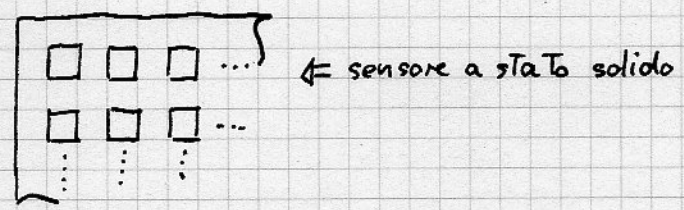 ⇐ sensore a stato solido